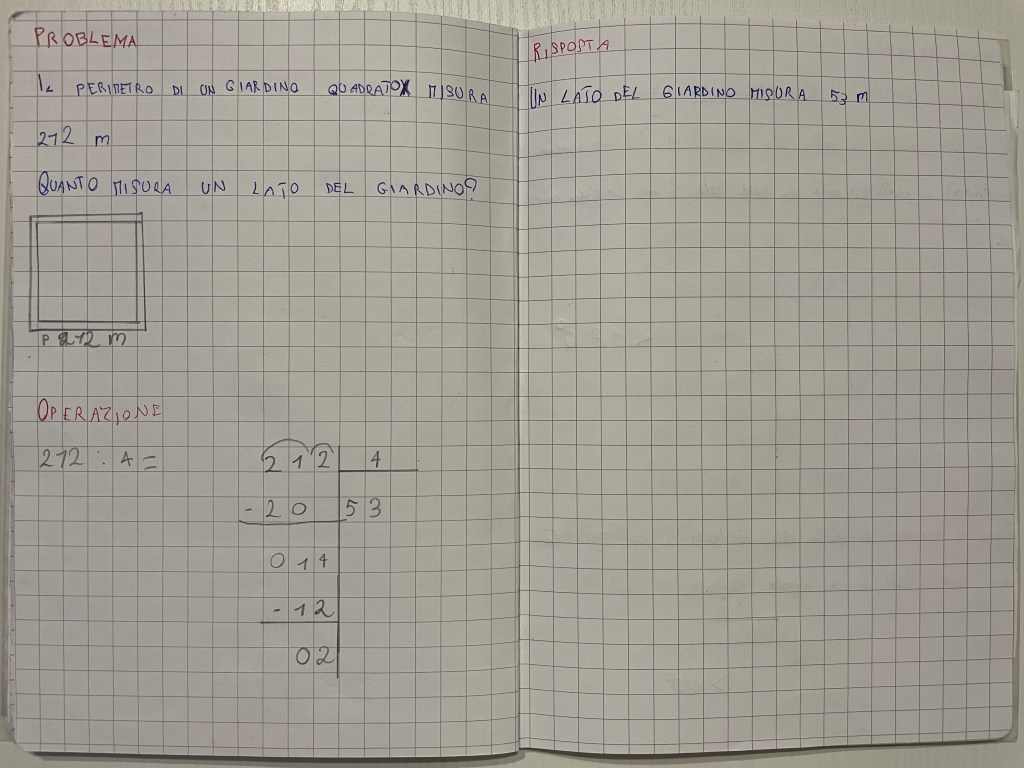 PROBLEMA
IL PERIMETRO DI UN GIARDINO QUADRATO MISURA
212 m
QUANTO MISURA UN LATO DEL GIARDINO?
P 212 m
OPERAZIONE
212 : 4 =
212 4
- 20 53
014
- 12
02
RISPOSTA
UN LATO DEL GIARDINO MISURA 53 m